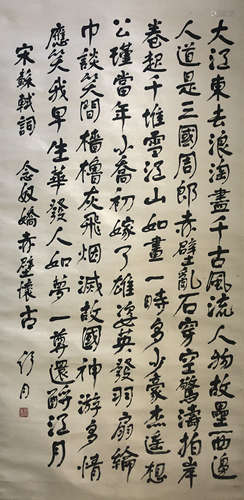 大江東去浪淘盡千古風流人物故壘西邊
人道是三國周郎赤壁亂石穿空驚濤拍岸
卷起千堆雪江山如畫一時多少豪杰遥想
公瑾當年小喬初嫁了雄姿英發羽扇綸
巾談笑間檣櫓灰飛烟滅故國神游多情
應笑我早生華發人如夢一尊還酹江月
宋蘇軾詞 念奴嬌赤壁懷古